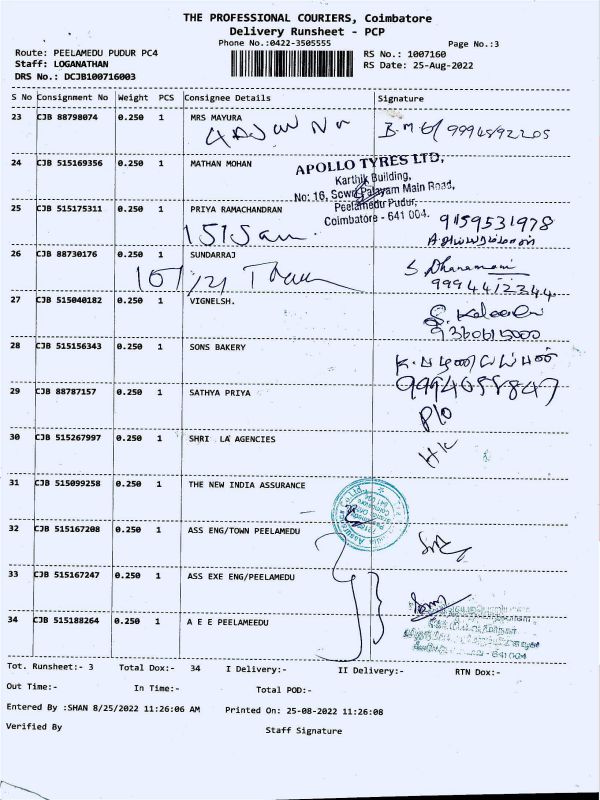 THE PROFESSIONAL COURIERS, Coimbatore
Delivery Runsheet - PCP
Phone No.:0422-3505555
Page No.:3
Route: PEELAMEDU PUDUR PC4
RS No.: 1007160
Staff: LOGANATHAN
RS Date: 25-Aug-2022
DRS No.: DCJB100716003
S No Consignment No Weight PCS Consignee Details Signature
23 CJB 88798074 0.250 1 MRS MAYURA
24 CJB 515169356 0.250 1 MATHAN MOHAN
APOLLO TYRES LTD,
Karthik Building,
Palayam Main Road,
Peelamedu Pudur,
Coimbatore - 641 004.
25 CJB 515175311 0.250 1 PRIYA RAMACHANDRAN
9159531978
26 CJB 88730176 0.250 1 SUNDARRAJ
S Dhanamani
9994412344
27 CJB 515040182 0.250 1 VIGNELSH.
9360615000
28 CJB 515156343 0.250 1 SONS BAKERY
29 CJB 88787157 0.250 1 SATHYA PRIYA
P/O
30 CJB 515267997 0.250 1 SHRI LA AGENCIES
31 CJB 515099258 0.250 1 THE NEW INDIA ASSURANCE
32 CJB 515167208 0.250 1 ASS ENG/TOWN PEELAMEDU
33 CJB 515167247 0.250 1 ASS EXE ENG/PEELAMEDU
34 CJB 515188264 0.250 1 A E E PEELAMEEDU
Tot. Runsheet:- 3 Total Dox:- 34 I Delivery:- II Delivery:- RTN Dox:-
Out Time:- In Time:- Total POD:-
Entered By :SHAN 8/25/2022 11:26:06 AM Printed On: 25-08-2022 11:26:08
Verified By
Staff Signature